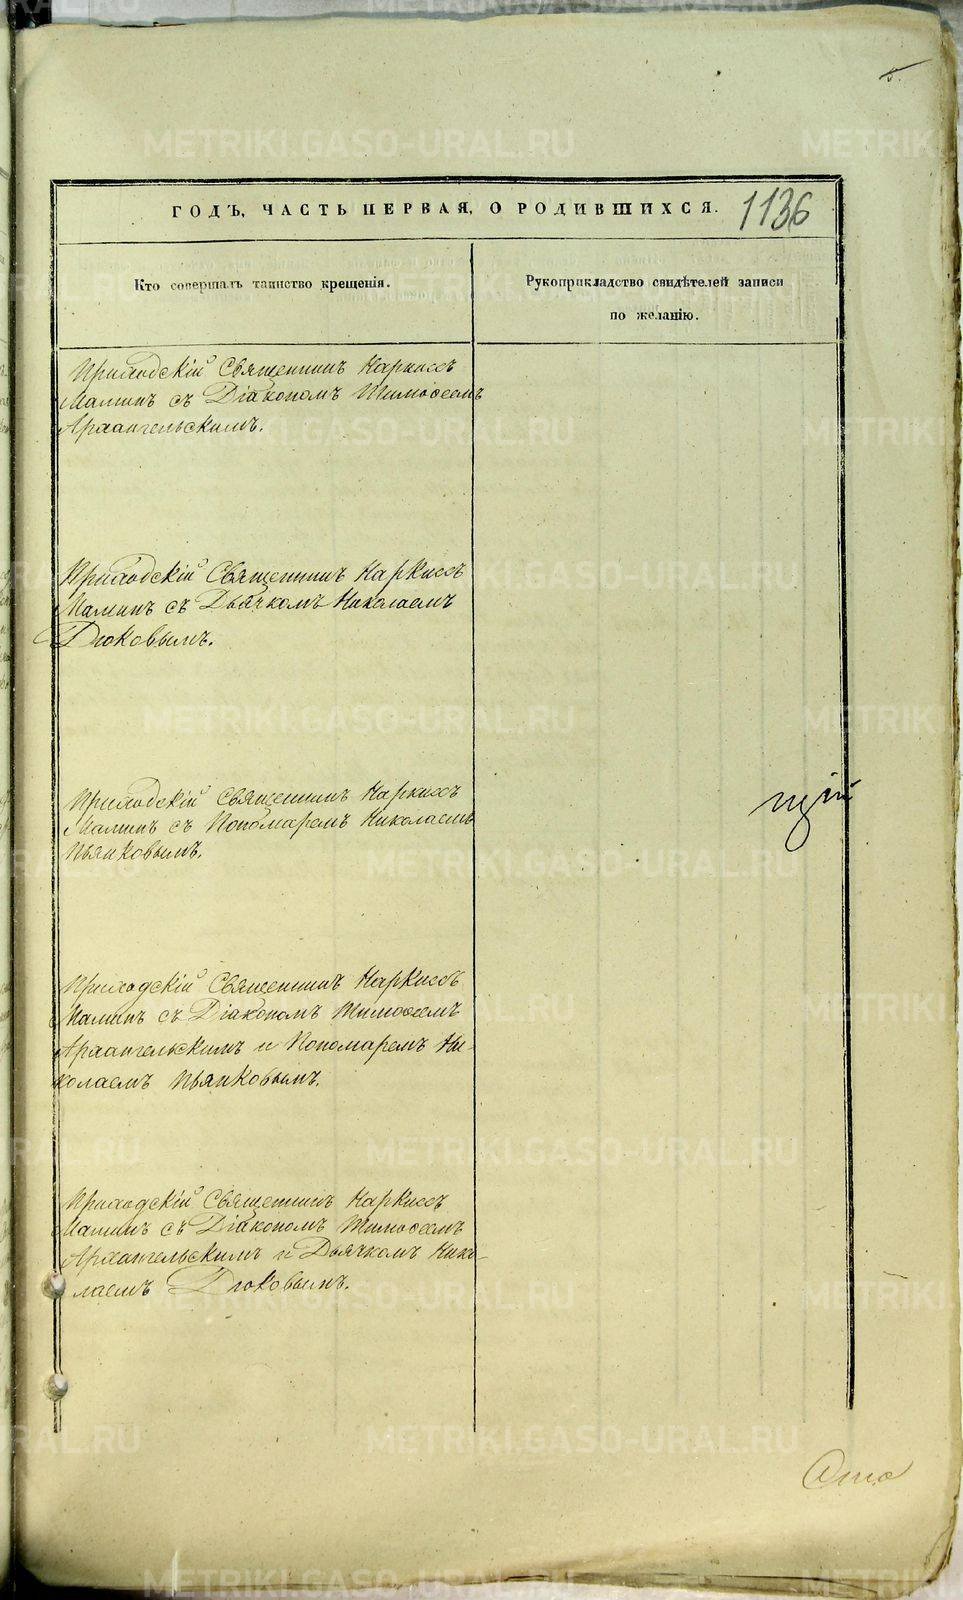 5.
ГОДЪ, ЧАСТЬ ПЕРВАЯ, О РОДИВШИХСЯ. 1136
Кто совершалъ таинство крещенія.
Рукоприкладство свидѣтелей записи
по желанію.
Приходскій Священникъ Наркиссъ
Малинъ съ Діакономъ Тимоѳеемъ
Архангельскимъ.
Приходскій Священникъ Наркиссъ
Малинъ съ Дьячкомъ Николаемъ
Дюковымъ.
Приходскій Священникъ Наркиссъ
Малинъ съ Пономаремъ Николаемъ
Пьянковымъ.
щій
Приходскій Священникъ Наркиссъ
Малинъ съ Діакономъ Тимоѳеемъ
Архангельскимъ и Пономаремъ Ни-
колаемъ Пьянковымъ.
Приходскій Священникъ Наркиссъ
Малинъ съ Діакономъ Тимоѳеемъ
Архангельскимъ и Дьячкомъ Нико-
лаемъ Дюковымъ.
METRIKI.GASO-URAL.RU